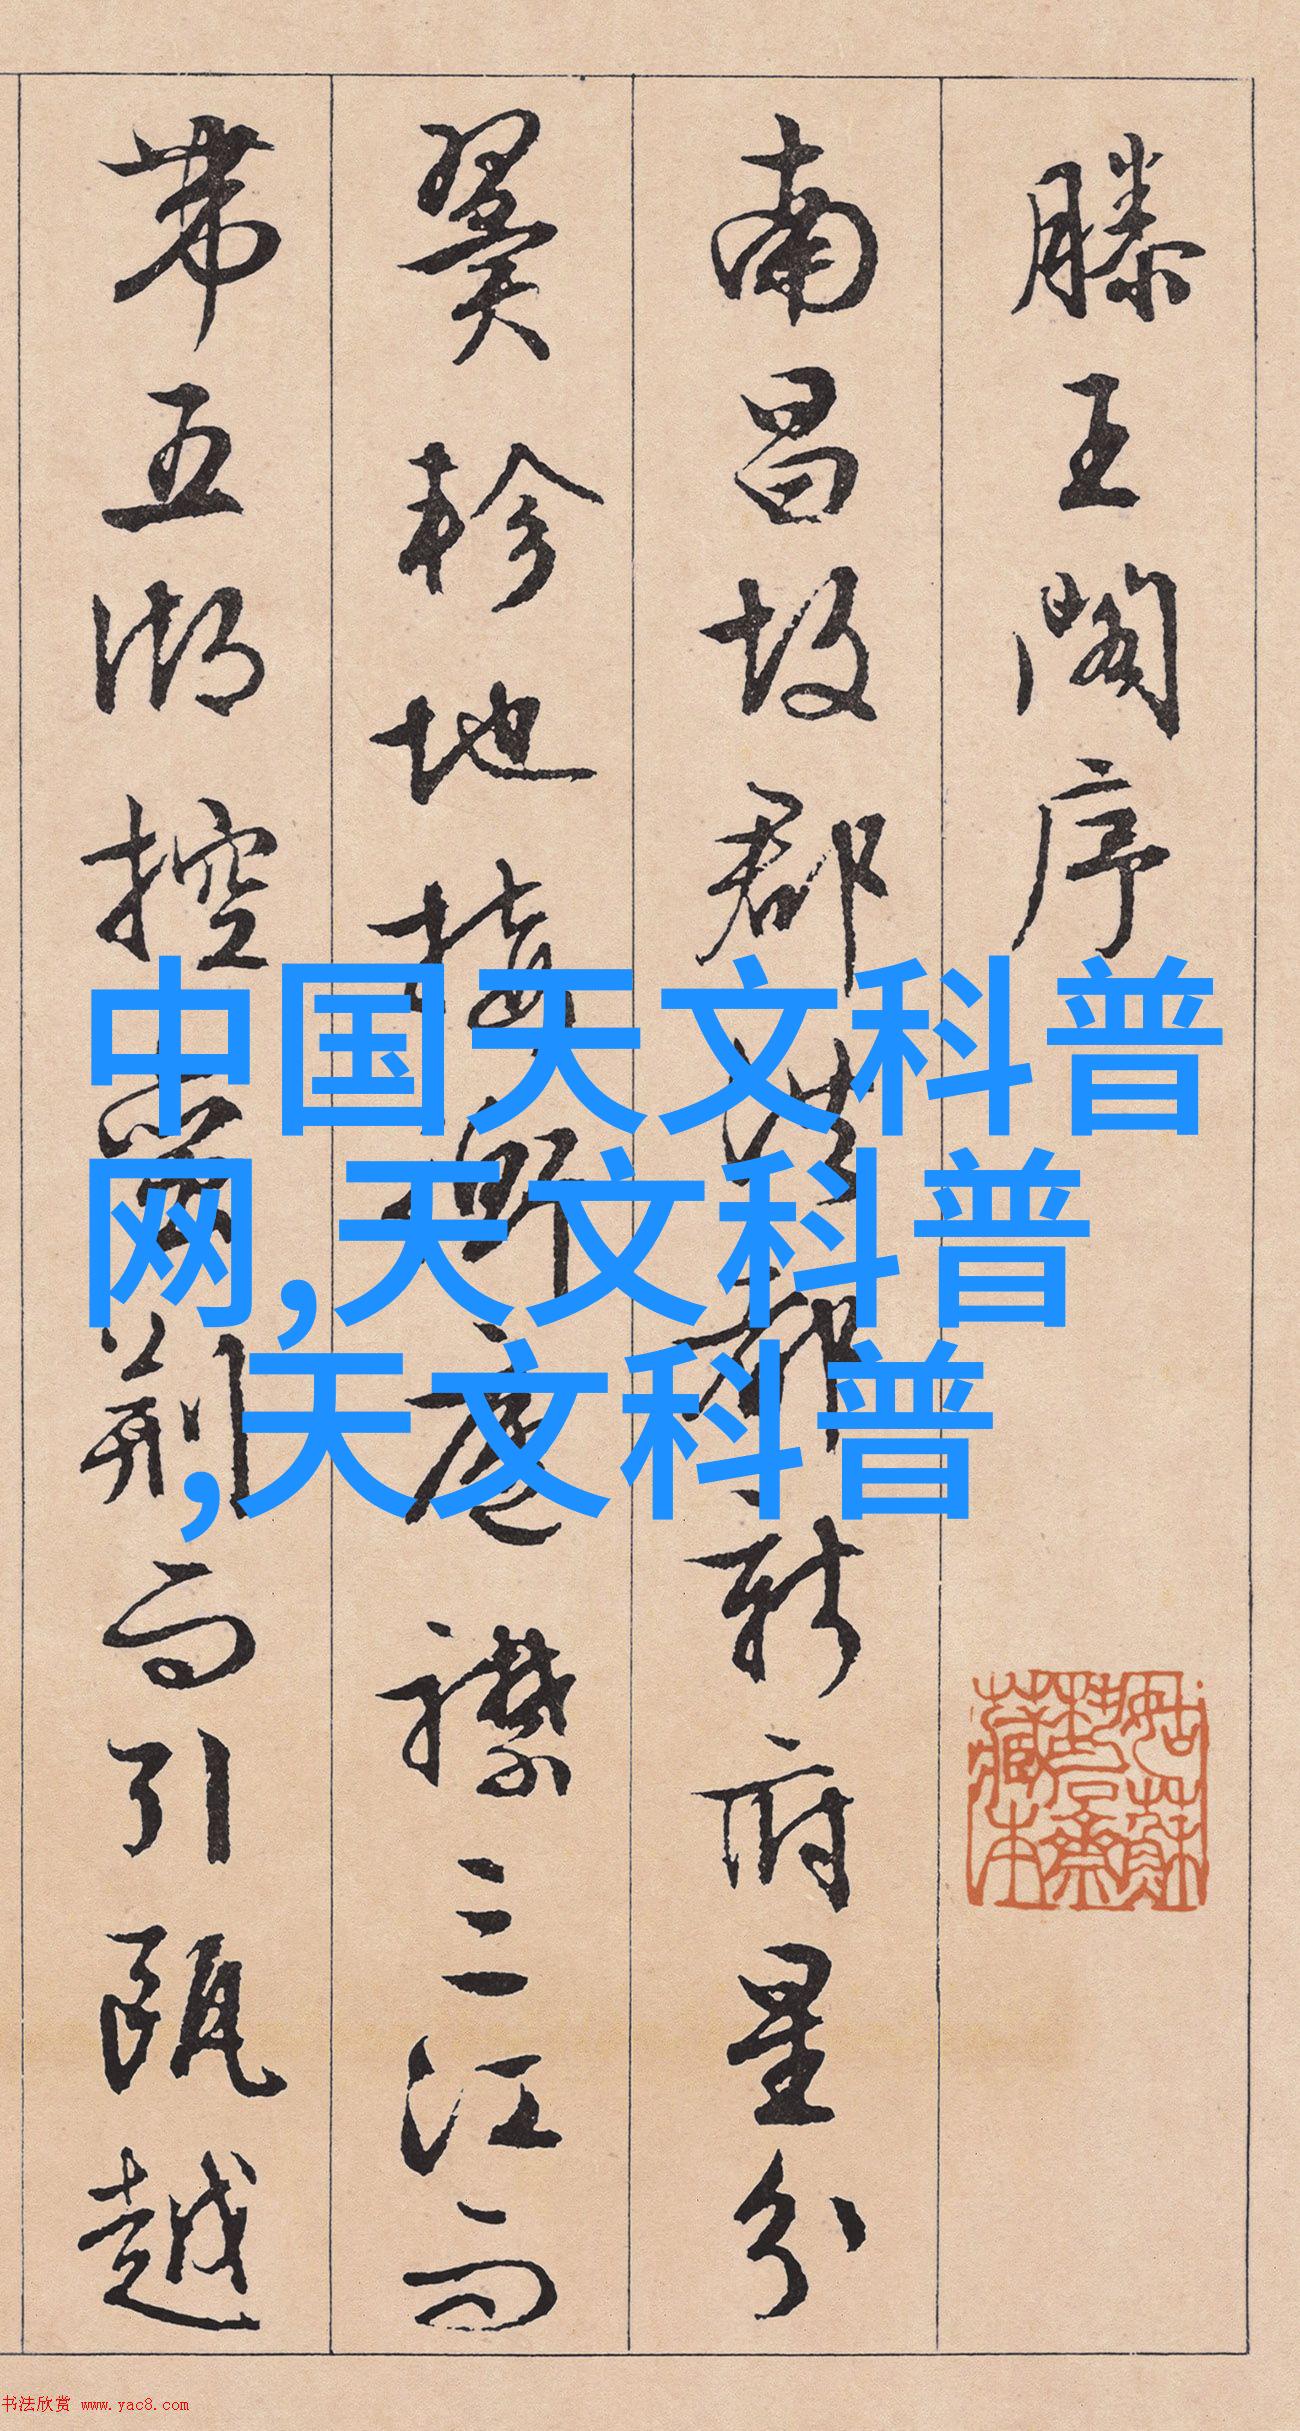 滕王閣序
南昌故郡洪都新府星分
翼軫地接衡廬襟三江而
帶五湖控蠻荆而引甌越
中国天文科普
网,天文科普
,天文科普
姑蘇
藏本
书法欣赏 www.yac8.com